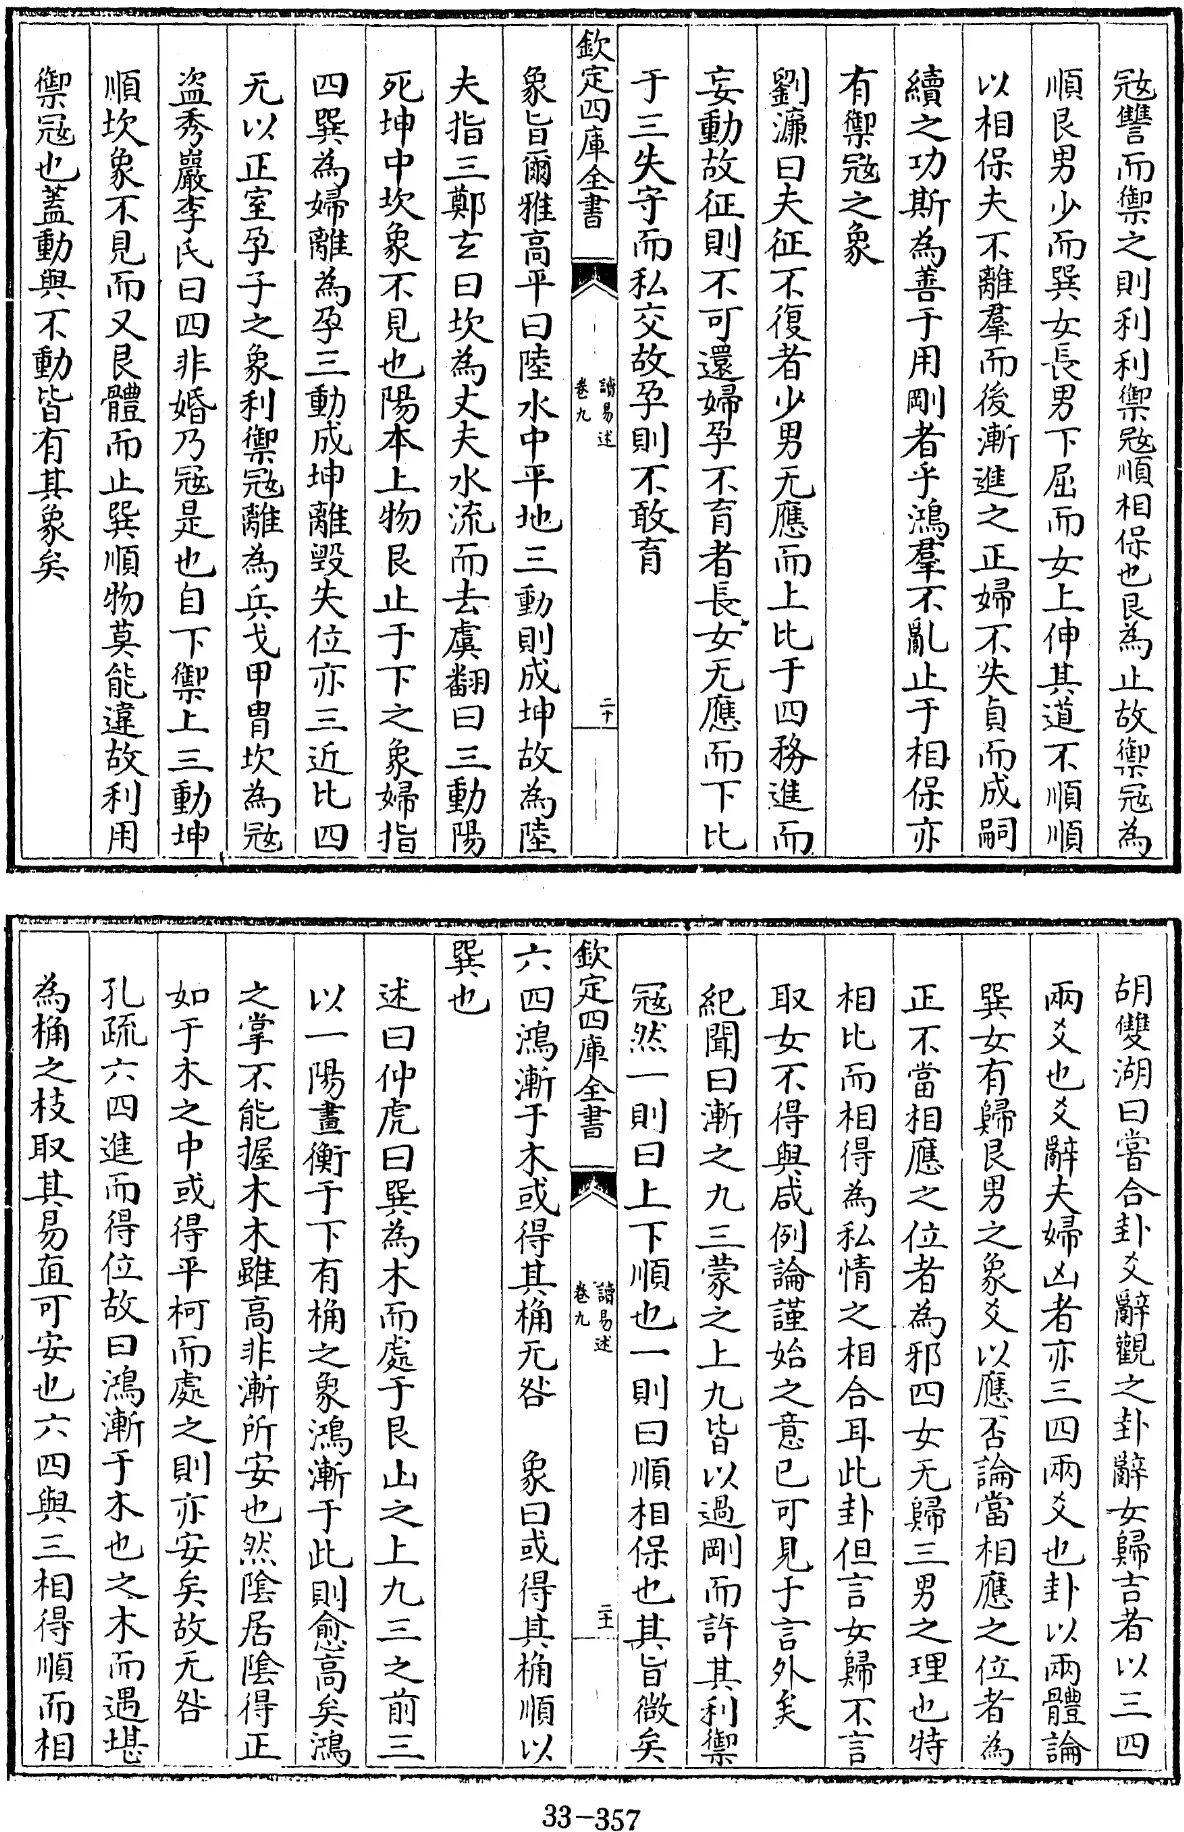 冦讐而禦之則利利禦冦順相保也艮為止故禦冦為
順艮男少而巽女長男下屈而女上伸其道不順順
以相保夫不離羣而後漸進之正婦不失貞而成嗣
續之功斯為善于用剛者乎鴻羣不亂止于相保亦
有禦冦之象
劉濂曰夫征不復者少男无應而上比于四務進而
妄動故征則不可還婦孕不育者長女无應而下比
于三失守而私交故孕則不敢育
欽定四庫全書
讀易述
卷九
二十
象旨爾雅高平曰陸水中平地三動則成坤故為陸
夫指三鄭玄曰坎為丈夫水流而去虞翻曰三動陽
死坤中坎象不見也陽本上物艮止于下之象婦指
四巽為婦離為孕三動成坤離毀失位亦三近比四
无以正室孕子之象利禦冦離為兵戈甲胄坎為冦
盗秀巖李氏曰四非婚乃冦是也自下禦上三動坤
順坎象不見而又艮體而止巽順物莫能違故利用
禦冦也蓋動與不動皆有其象矣
胡雙湖曰嘗合卦爻辭觀之卦辭女歸吉者以三四
兩爻也爻辭夫婦凶者亦三四兩爻也卦以兩體論
巽女有歸艮男之象爻以應否論當相應之位者為
正不當相應之位者為邪四女无歸三男之理也特
相比而相得為私情之相合耳此卦但言女歸不言
取女不得與咸例論謹始之意已可見于言外矣
紀聞曰漸之九三蒙之上九皆以過剛而許其利禦
冦然一則曰上下順也一則曰順相保也其旨微矣
欽定四庫全書
讀易述
卷九
二十一
六四鴻漸于木或得其桷无咎　象曰或得其桷順以
巽也
述曰仲虎曰巽為木而處于艮山之上九三之前三
以一陽畫衡于下有桷之象鴻漸于此則愈高矣鴻
之掌不能握木木雖高非漸所安也然陰居陰得正
如于木之中或得平柯而處之則亦安矣故无咎
孔疏六四進而得位故曰鴻漸于木也之木而遇堪
為桷之枝取其易直可安也六四與三相得順而相
33-357